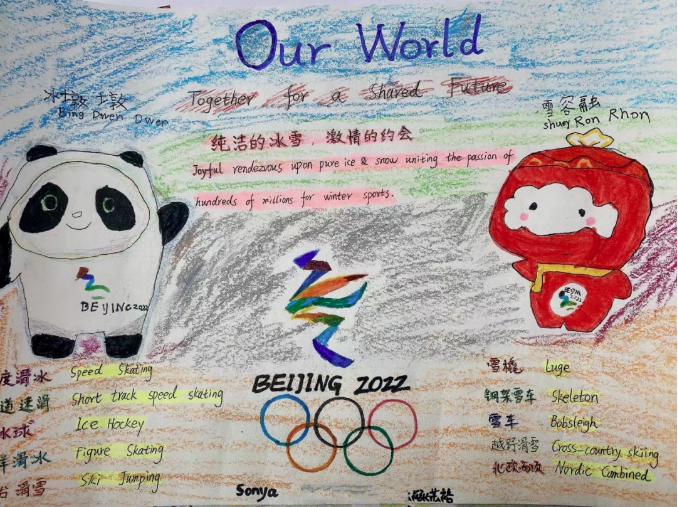 Our World
Together for a Shared Future
冰墩墩
Bing Dwen Dwen
雪容融
Shuey Ron Rhon
纯洁的冰雪，激情的约会
Joyful rendezvous upon pure ice & snow uniting the passion of
hundreds of millions for winter sports.
BEIJING 2022
BEIJIN
2022
BEIJING 2022
度滑冰 Speed Skating
道速滑 Short track speed skating
冰球 Ice Hockey
样滑冰 Figure Skating
台滑雪 Ski Jumping
雪橇 Luge
钢架雪车 Skeleton
雪车 Bobsleigh
越野滑雪 Cross-country skiing
北欧两项 Nordic Combined
Sonya